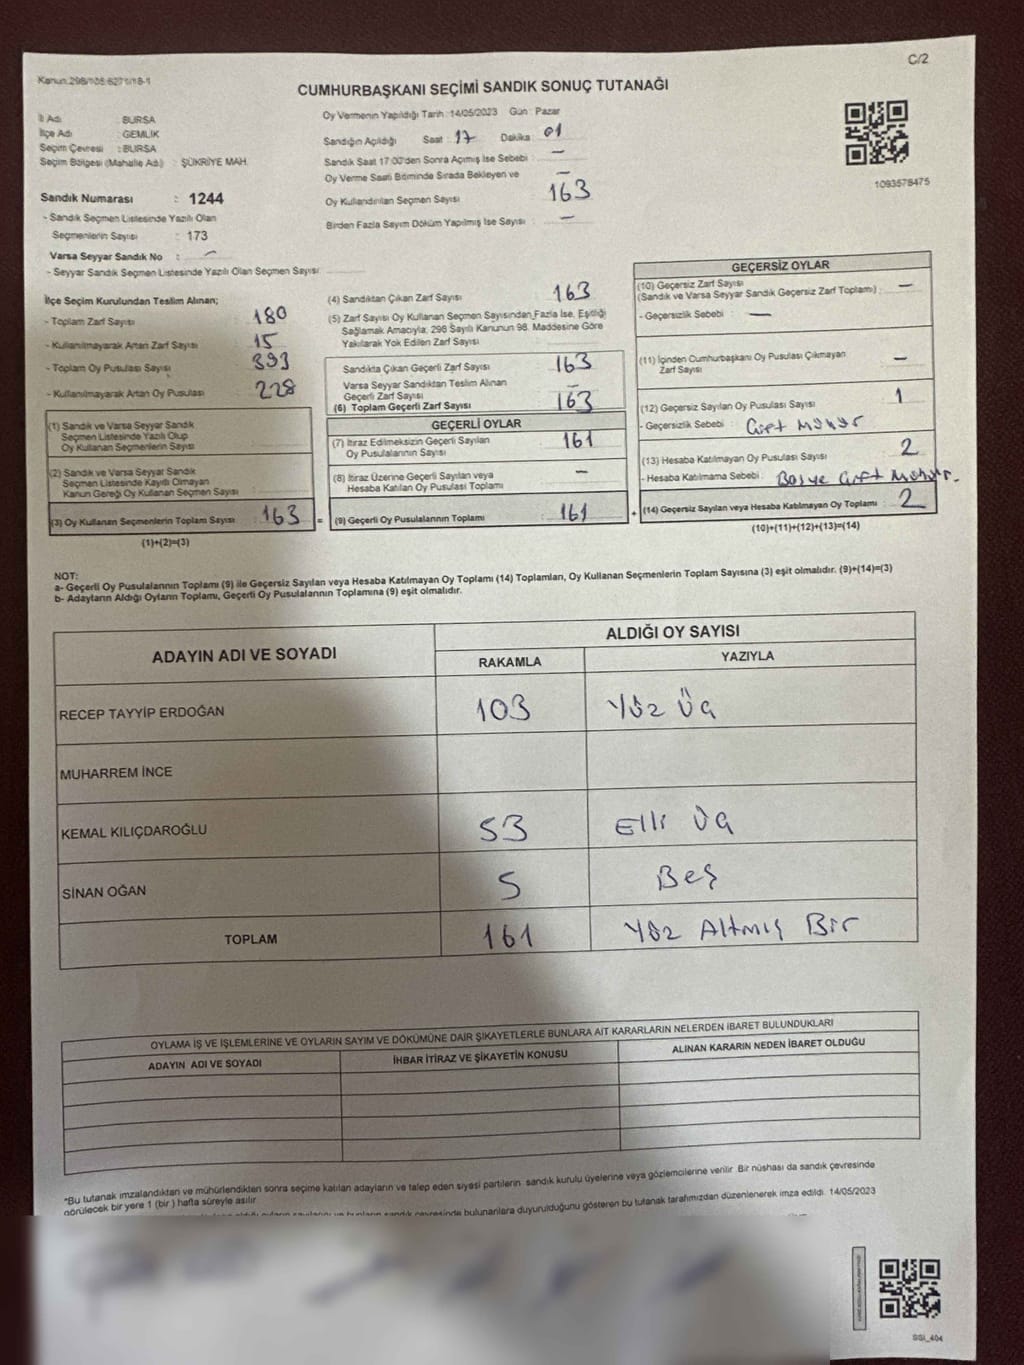 C/2
Kanun:298/105-6271/18-1
CUMHURBAŞKANI SEÇİMİ SANDIK SONUÇ TUTANAĞI
İl Adı : BURSA
İlçe Adı : GEMLİK
Seçim Çevresi : BURSA
Seçim Bölgesi (Mahalle Ad.) : ŞÜKRİYE MAH.
Sandık Numarası : 1244
- Sandık Seçmen Listesinde Yazılı Olan
Seçmenlerin Sayısı : 173
Varsa Seyyar Sandık No : —
- Seyyar Sandık Seçmen Listesinde Yazılı Olan Seçmen Sayısı:
Oy Vermenin Yapıldığı Tarih : 14/05/2023 Gün : Pazar
Sandığın Açıldığı Saat : 17 Dakika : 01
Sandık Saat 17:00'den Sonra Açımış İse Sebebi : —
Oy Verme Saati Bitiminde Sırada Bekleyen ve —
Oy Kullandırılan Seçmen Sayısı 163
Birden Fazla Sayım Döküm Yapılmış İse Sayısı : —
1093578475
İlçe Seçim Kurulundan Teslim Alınan;
- Toplam Zarf Sayısı 180
- Kullanılmayarak Artan Zarf Sayısı 15
- Toplam Oy Pusulası Sayısı 393
- Kullanılmayarak Artan Oy Pusulası 228
(1) Sandık ve Varsa Seyyar Sandık
Seçmen Listesinde Yazılı Olup
Oy Kullanan Seçmenlerin Sayısı
(2) Sandık ve Varsa Seyyar Sandık
Seçmen Listesinde Kayıtlı Olmayan
Kanun Gereği Oy Kullanan Seçmen Sayısı
(3) Oy Kullanan Seçmenlerin Toplam Sayısı 163 =
(1)+(2)=(3)
(4) Sandıktan Çıkan Zarf Sayısı 163
(5) Zarf Sayısı Oy Kullanan Seçmen Sayısından Fazla İse, Eşitliği
Sağlamak Amacıyla, 298 Sayılı Kanunun 98. Maddesine Göre
Yakılarak Yok Edilen Zarf Sayısı
Sandıkta Çıkan Geçerli Zarf Sayısı 163
Varsa Seyyar Sandıktan Teslim Alınan
Geçerli Zarf Sayısı —
(6) Toplam Geçerli Zarf Sayısı 163
GEÇERLİ OYLAR
(7) İtiraz Edilmeksizin Geçerli Sayılan
Oy Pusulalarının Sayısı 161
(8) İtiraz Üzerine Geçerli Sayılan veya
Hesaba Katılan Oy Pusulası Toplamı —
(9) Geçerli Oy Pusulalarının Toplamı 161 +
GEÇERSİZ OYLAR
(10) Geçersiz Zarf Sayısı
(Sandık ve Varsa Seyyar Sandık Geçersiz Zarf Toplamı) : —
- Geçersizlik Sebebi : —
(11) İçinden Cumhurbaşkanı Oy Pusulası Çıkmayan
Zarf Sayısı —
(12) Geçersiz Sayılan Oy Pusulası Sayısı 1
- Geçersizlik Sebebi : Çift Mühür
(13) Hesaba Katılmayan Oy Pusulası Sayısı 2
- Hesaba Katılmama Sebebi : Boş ve Çift Mühür.
(14) Geçersiz Sayılan veya Hesaba Katılmayan Oy Toplamı 2
(10)+(11)+(12)+(13)=(14)
NOT:
a- Geçerli Oy Pusulalarının Toplamı (9) ile Geçersiz Sayılan veya Hesaba Katılmayan Oy Toplamı (14) Toplamları, Oy Kullanan Seçmenlerin Toplam Sayısına (3) eşit olmalıdır. (9)+(14)=(3)
b- Adayların Aldığı Oyların Toplamı, Geçerli Oy Pusulalarının Toplamına (9) eşit olmalıdır.
ADAYIN ADI VE SOYADI ALDIĞI OY SAYISI
RAKAMLA YAZIYLA
RECEP TAYYİP ERDOĞAN 103 Yüz Üç
MUHARREM İNCE
KEMAL KILIÇDAROĞLU 53 Elli Üç
SİNAN OĞAN 5 Beş
TOPLAM 161 Yüz Altmış Bir
OYLAMA İŞ VE İŞLEMLERİNE VE OYLARIN SAYIM VE DÖKÜMÜNE DAİR ŞİKAYETLERLE BUNLARA AİT KARARLARIN NELERDEN İBARET BULUNDUKLARI
ADAYIN ADI VE SOYADI İHBAR İTİRAZ VE ŞİKAYETİN KONUSU ALINAN KARARIN NEDEN İBARET OLDUĞU
*Bu tutanak imzalandıktan ve mühürlendikten sonra seçime katılan adayların ve talep eden siyasi partilerin sandık kurulu üyelerine veya gözlemcilerine verilir. Bir nüshası da sandık çevresinde
görülecek bir yere 1 (bir) hafta süreyle asılır.
sandık çevresinde bulunanlara duyurulduğunu gösteren bu tutanak tarafımızdan düzenlenerek imza edildi. 14/05/2023
SSI_404